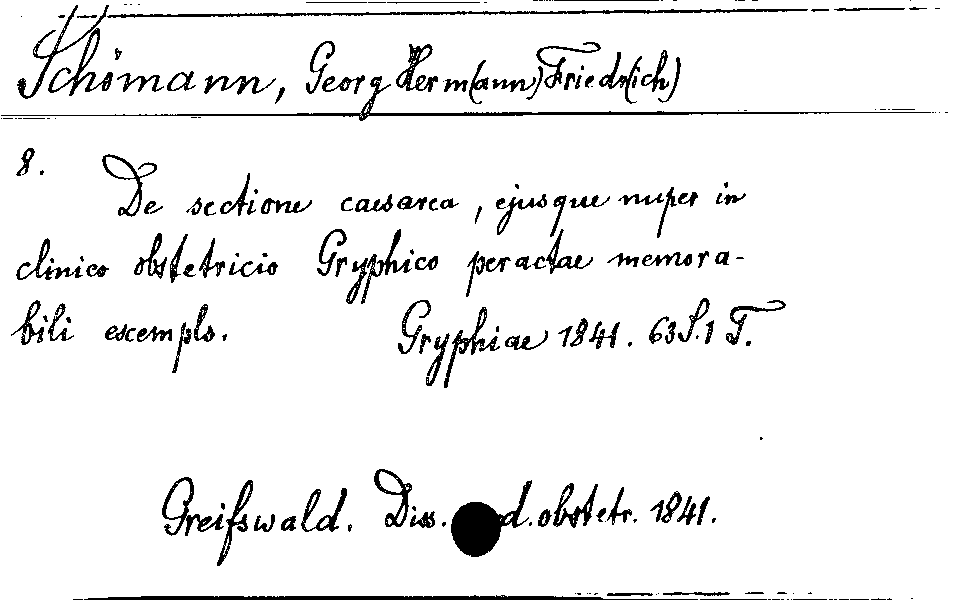 Schömann, Georg Herm(ann) Friedr(ich)
8.
De sectione caesarea, ejusque nuper in
clinico obstetricio Gryphico peractae memora-
bili exemplo. Gryphiae 1841. 63 S. 1 T.
Greifswald. Diss. d. obstetr. 1841.